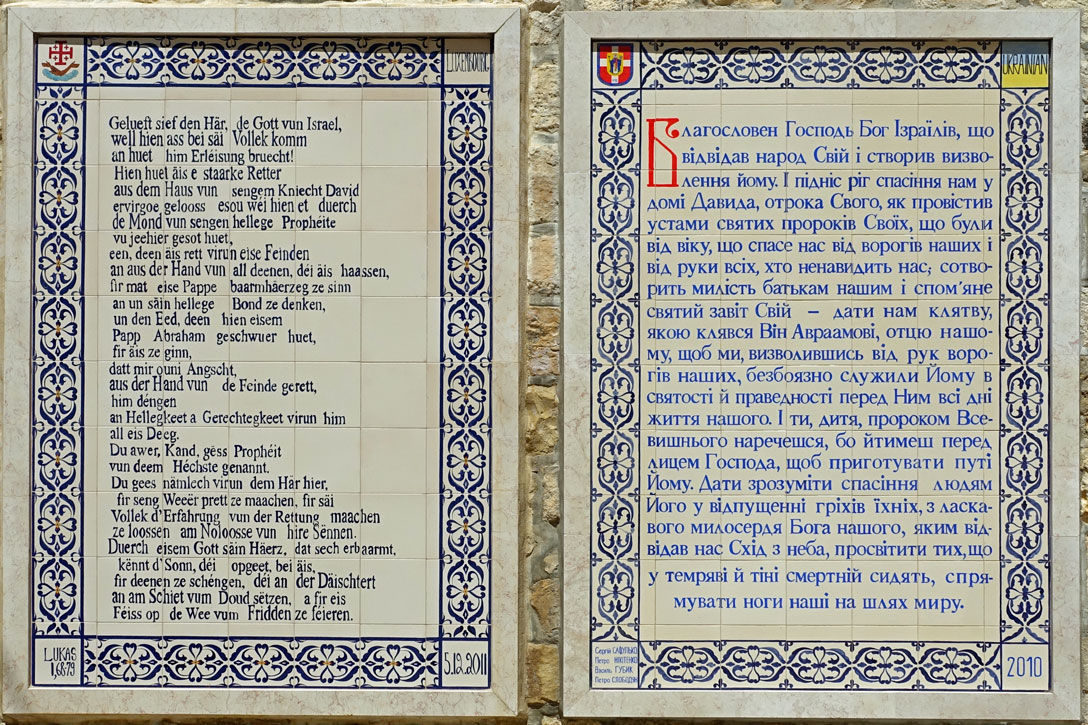 LUXEMBOURG
Gelueft sief den Här, de Gott vun Israel,
well hien ass bei säi Vollek komm
an huet him Erléisung bruecht!
Hien huet äis e staarke Retter
aus dem Haus vun sengem Kniecht David
ervirgoe gelooss esou wéi hien et duerch
de Mond vun sengen hellege Prophéite
vu jeehier gesot huet,
een, deen äis rett virun eise Feinden
an aus der Hand vun all deenen, déi äis haassen,
fir mat eise Pappe baarmhäerzeg ze sinn
an un säin hellege Bond ze denken,
un den Eed, deen hien eisem
Papp Abraham geschwuer huet,
fir äis ze ginn,
datt mir ouni Angscht,
aus der Hand vun de Feinde gerett,
him déngen
an Hellegkeet a Gerechtegkeet virun him
all eis Deeg.
Du awer, Kand, gëss Prophéit
vun deem Héchste genannt.
Du gees nämlech virun dem Här hier,
fir seng Weeër prett ze maachen, fir säi
Vollek d'Erfahrung vun der Rettung maachen
ze loossen am Noloosse vun hire Sënnen.
Duerch eisem Gott säin Häerz, dat sech erbaarmt,
kënnt d'Sonn, déi opgeet, bei äis,
fir deenen ze schéngen, déi an der Däischtert
an am Schiet vum Doud sëtzen, a fir eis
Féiss op de Wee vum Fridden ze féieren.
LUKAS
1,68-79
5.12.2011
UKRAINIAN
Благословен Господь Бог Ізраїлів, що
відвідав народ Свій і створив визво-
лення йому. І підніс ріг спасіння нам у
домі Давида, отрока Свого, як провістив
устами святих пророків Своїх, що були
від віку, що спасе нас від ворогів наших і
від руки всіх, хто ненавидить нас; сотво-
рить милість батькам нашим і спом'яне
святий завіт Свій – дати нам клятву,
якою клявся Він Авраамові, отцю нашо-
му, щоб ми, визволившись від рук воро-
гів наших, безбоязно служили Йому в
святості й праведності перед Ним всі дні
життя нашого. І ти, дитя, пророком Все-
вишнього наречешся, бо йтимеш перед
лицем Господа, щоб приготувати путі
Йому. Дати зрозуміти спасіння людям
Його у відпущенні гріхів їхніх, з ласка-
вого милосердя Бога нашого, яким від-
відав нас Схід з неба, просвітити тих, що
у темряві й тіні смертній сидять, спря-
мувати ноги наші на шлях миру.
Сергій
Петро
Василь ГУБИК
Петро СЛОБОДЯН
2010